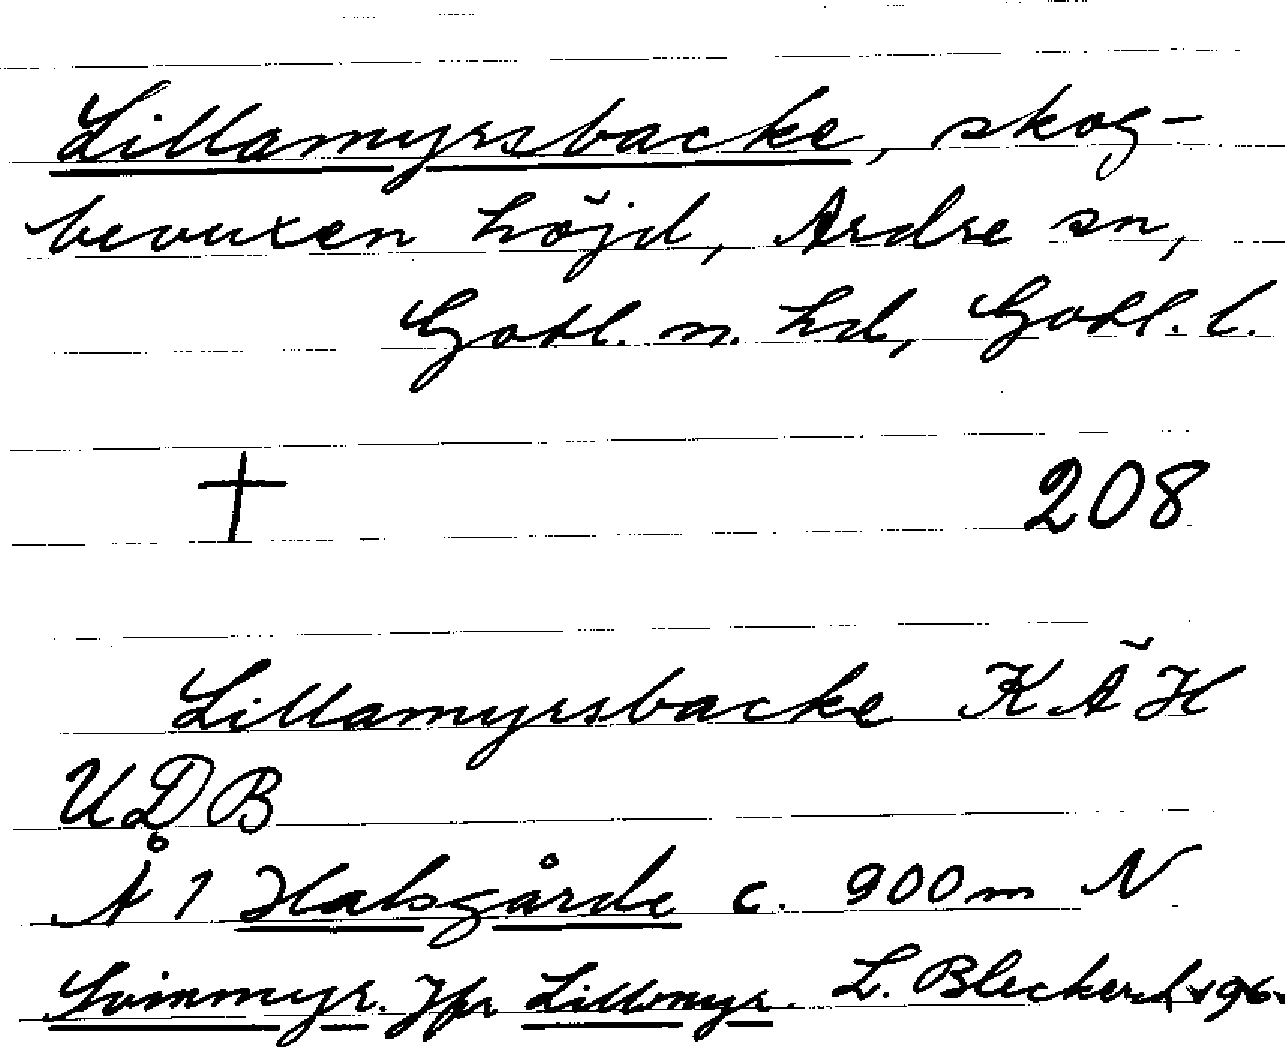 Lillamyrsbacke, skog-
bevuxen höjd, Ardre sn,
Gotl. n. hd, Gotl. l.
† 208
Lillamyrsbacke KÄH
UDB
Å 1 Halsgårde c. 900 m N
Svinmyr. Jfr Lillmyr. L.